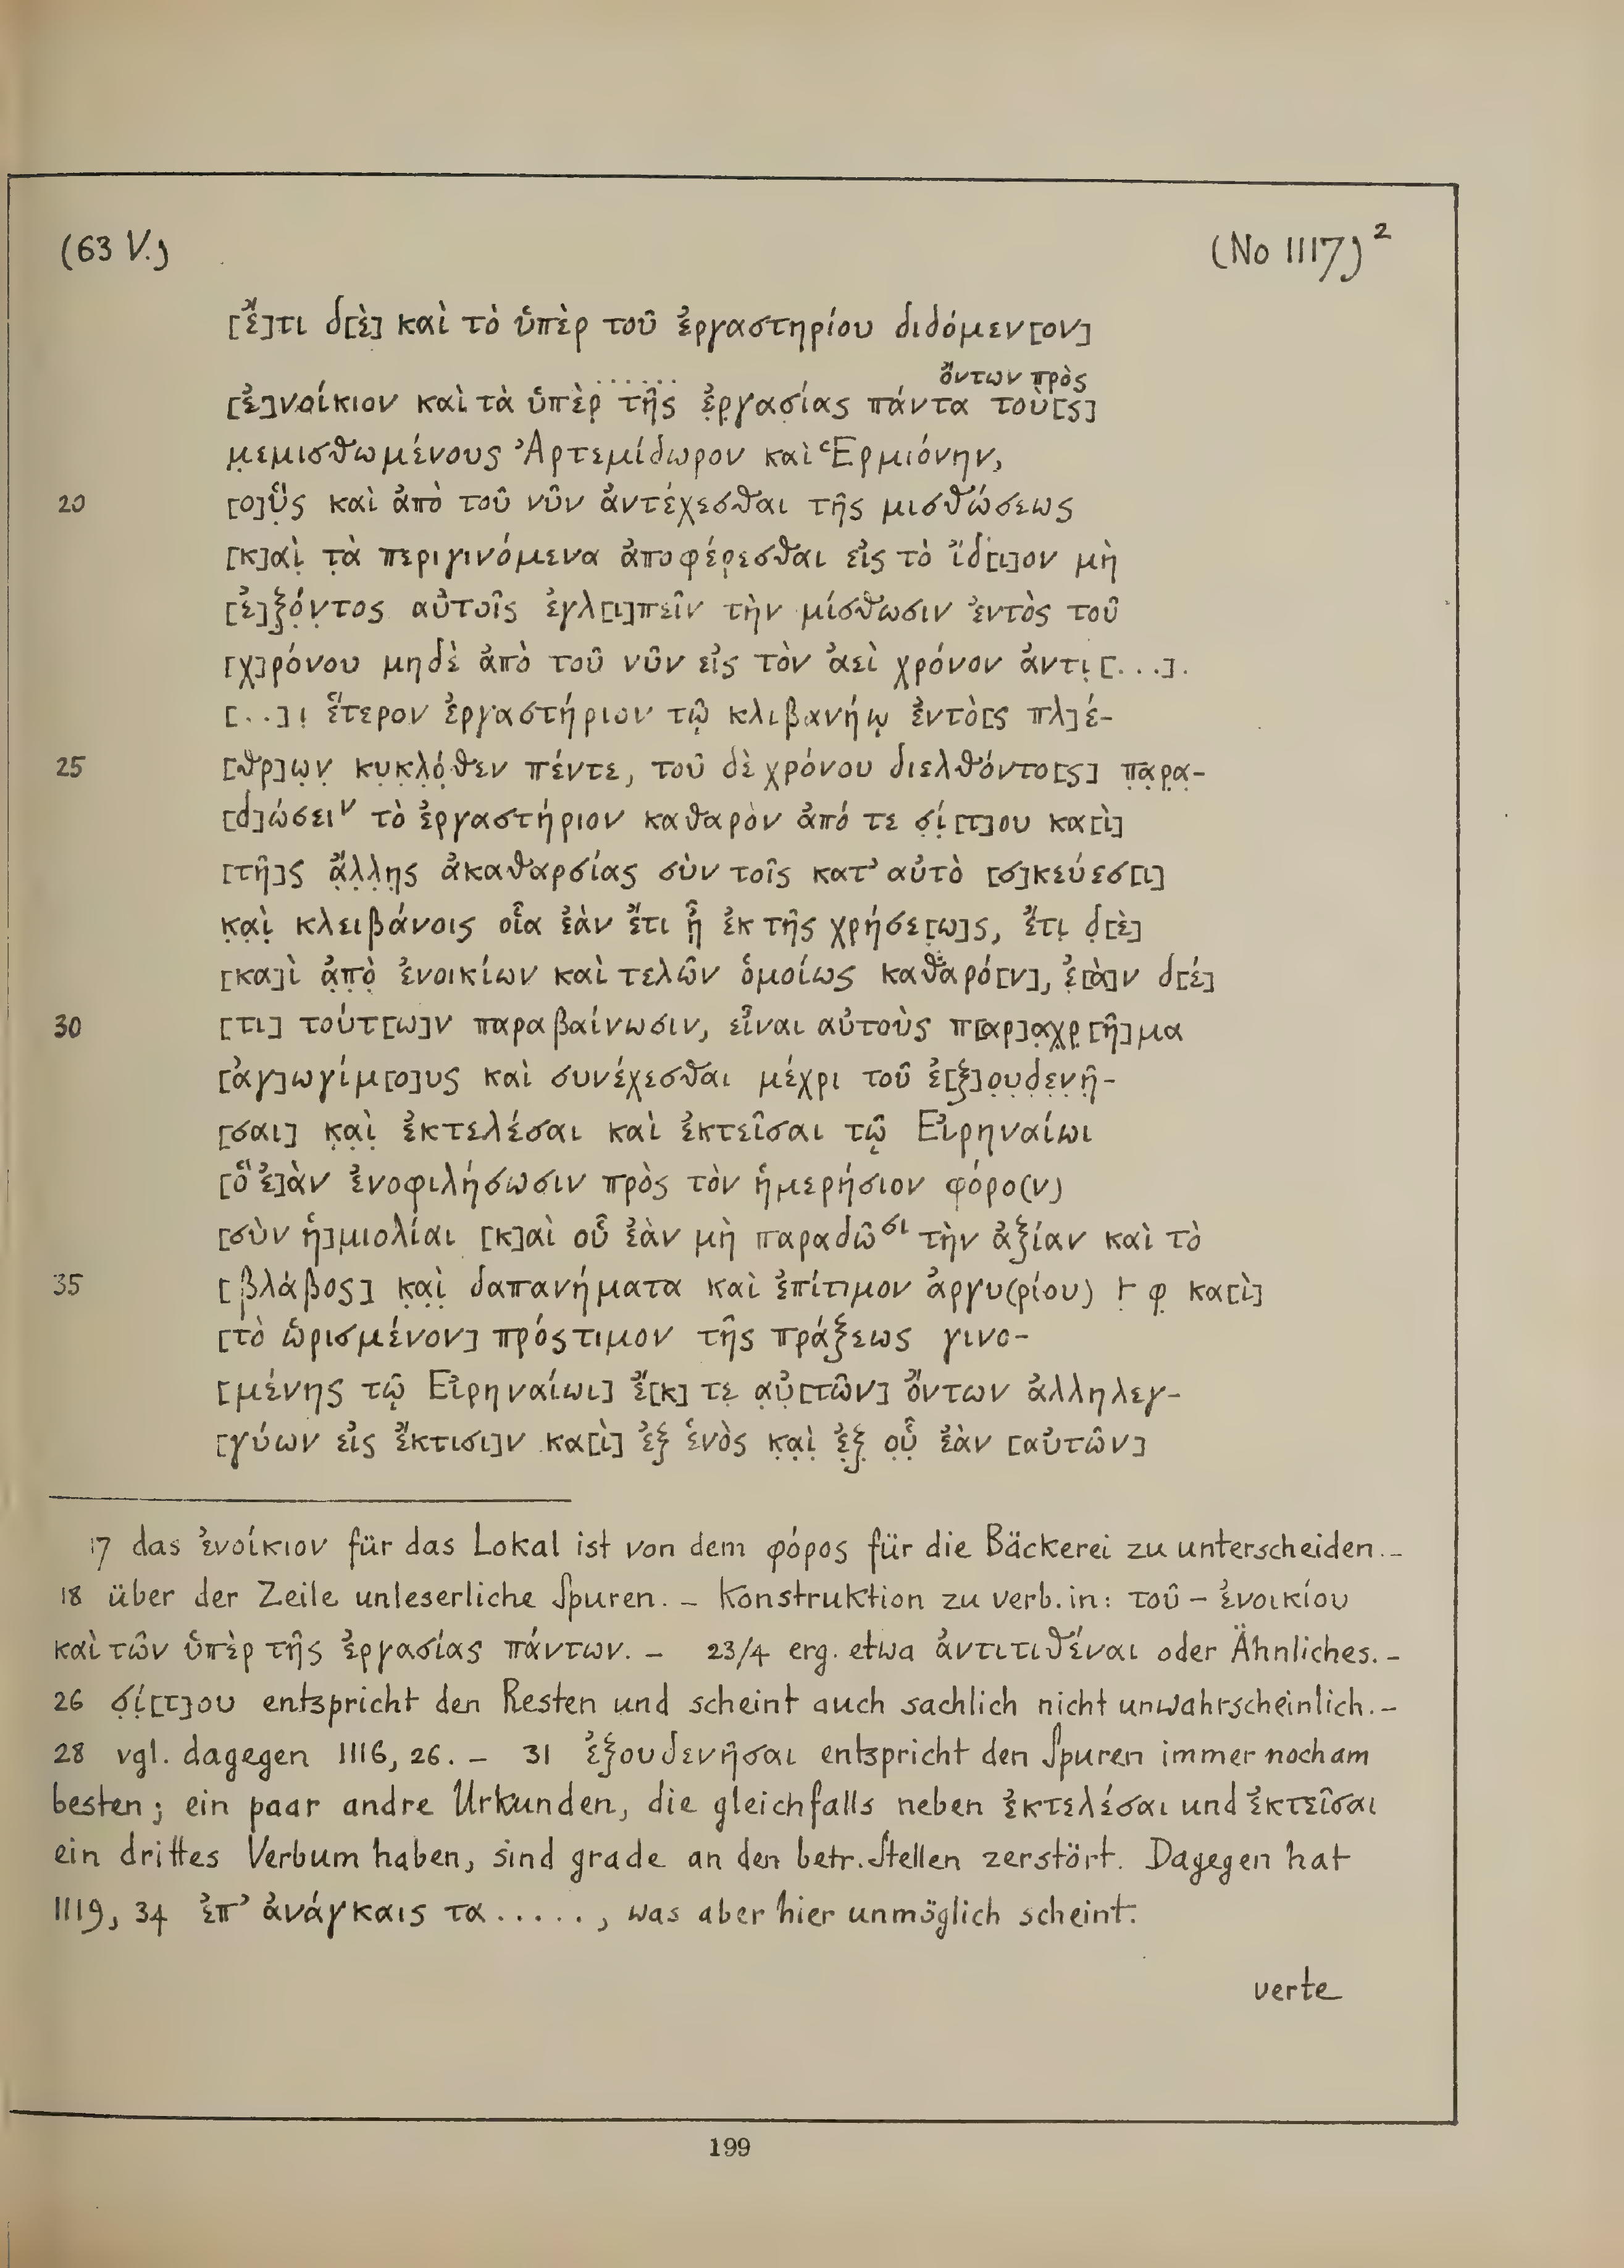 (63 V.)
(No 1117)²
[ἔ]τι δ[ὲ] καὶ τὸ ὑπὲρ τοῦ ἐργαστηρίου διδόμεν[ον]
. . . . . . ὄντων πρὸς
[ἐ]νοίκιον καὶ τὰ ὑπὲρ̣ τῆς ἐ̣ρ̣γασίας πάντα τοὺ[ς]
μ̣εμισθωμένους Ἀρτεμίδωρον καὶ Ἑρμιόνην,
20 [ο]ὓ̣ς καὶ ἀπὸ τοῦ νῦν ἀντέχεσθαι τῆς μισθώσεως
[κ]αὶ̣ τ̣ὰ περιγινόμενα ἀποφέρ̣εσθαι εἰς τὸ ἴδ[ι]ον μὴ
[ἐ]ξ̣ό̣ν̣τος αὐτοῖς ἐγλ[ι]πεῖν τὴν μίσθωσιν ἐντὸς τοῦ
[χ]ρόνου μηδὲ ἀπὸ τοῦ νῦν εἰς τὸν ἀεὶ χρόνον ἀντι̣[. . .].
[. .]ι̣ ἕτερον ἐργαστήριον τῷ κλιβανήῳ ἐντὸ[ς πλ]έ-
25 [θρ]ω̣ν̣ κ̣υ̣κ̣λ̣ό̣θεν πέντε, τοῦ δὲ χρόνου διελθόντο[ς] π̣α̣ρ̣α̣-
[δ]ώσειν τὸ ἐργαστήριον καθαρὸν ἀπό τε σ̣ί̣[τ]ου κα[ὶ]
[τῆ]ς ἄ̣λ̣λ̣η̣ς ἀκαθαρσίας σὺν τοῖς κατ’ αὐτὸ [σ]κεύεσ[ι]
κ̣α̣ὶ̣ κλειβάνοις οἷα ἐὰν ἔτι ᾖ̣ ἐκ τῆς χρήσε[ω]ς, ἔτι̣ δ̣[ὲ]
[κα]ὶ ἀ̣π̣ὸ̣ ἐνοικίων καὶ τελῶν ὁμοίως καθαρό[ν], ἐ̣[ὰ]ν δ[έ]
30 [τι] τούτ[ω]ν παραβαίνωσιν, εἶναι αὐτοὺς π[αρ]α̣χ̣ρ̣[ῆ]μα
[ἀγ]ωγίμ[ο]υς καὶ συνέχεσθαι μέχρι τοῦ ἐ[ξ]ο̣υ̣δ̣ε̣ν̣ῆ̣-
[σαι] κ̣α̣ὶ̣ ἐκτελέσαι καὶ ἐκτεῖσαι τῷ Εἰρηναίωι
[ὃ ἐ]ὰν ἐνοφιλήσωσιν πρὸς τὸν ἡμερήσιον φόρο(ν)
[σὺν ἡ]μιολίαι [κ]αὶ οὗ ἐὰν μὴ παραδῶσι τὴν ἀξίαν καὶ τὸ
35 [βλάβος] κ̣α̣ὶ̣ δαπανήματα καὶ ἐπίτιμον ἀργυ(ρίου) 𐅂 φ κα[ὶ]
[τὸ ὡρισμένον] πρόςτιμον τῆς πράξεως γινο-
[μένης τῷ Εἰρηναίωι] ἔ[κ] τε̣ α̣ὐ̣[τῶν] ὄντων ἀλληλεγ-
[γύων εἰς ἔκτισι]ν κα[ὶ] ἐξ ἑνὸς κ̣α̣ὶ̣ ἐ̣ξ̣ ο̣ὗ̣ ἐὰν [αὐτῶν]
17 das ἐνοίκιον für das Lokal ist von dem φόρος für die Bäckerei zu unterscheiden. –
18 über der Zeile unleserliche Spuren. – Konstruktion zu verb. in: τοῦ – ἐνοικίου
καὶ τῶν ὑπὲρ τῆς ἐργασίας πάντων. – 23/4 erg. etwa ἀντιτιθέναι oder Ähnliches. –
26 σ̣ί̣[τ]ου entspricht den Resten und scheint auch sachlich nicht unwahrscheinlich. –
28 vgl. dagegen 1116, 26. – 31 ἐξουδενῆσαι entspricht den Spuren immer noch am
besten; ein paar andre Urkunden, die gleichfalls neben ἐκτελέσαι und ἐκτεῖσαι
ein drittes Verbum haben, sind grade an den betr. Stellen zerstört. Dagegen hat
1119, 34 ἐπ’ ἀνάγκαις τα . . . . . , was aber hier unmöglich scheint.
verte
199